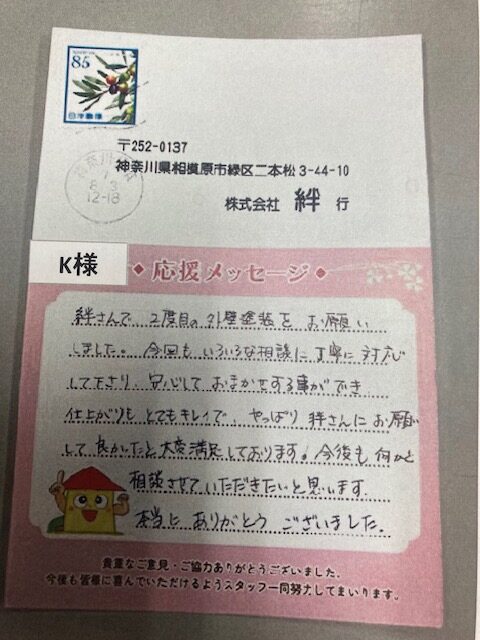 85
日本郵便
〒252-0137
神奈川県相模原市緑区二本松3-44-10
株式会社 絆 行
7
8.3
12-18
K様
応援メッセージ
絆さんで、2度目の外壁塗装をお願い
しました。今回もいろいろな相談に丁寧に対応
して下さり、安心しておまかせする事ができ
仕上がりもとてもキレイで、やっぱり絆さんにお願
して良かったと大変満足しております。今後も何かと
相談させていただきたいと思います
本当にありがとうございました。
貴重なご意見・ご協力ありがとうございました。
今後も皆様に喜んでいただけるようスタッフ一同努力してまいります。